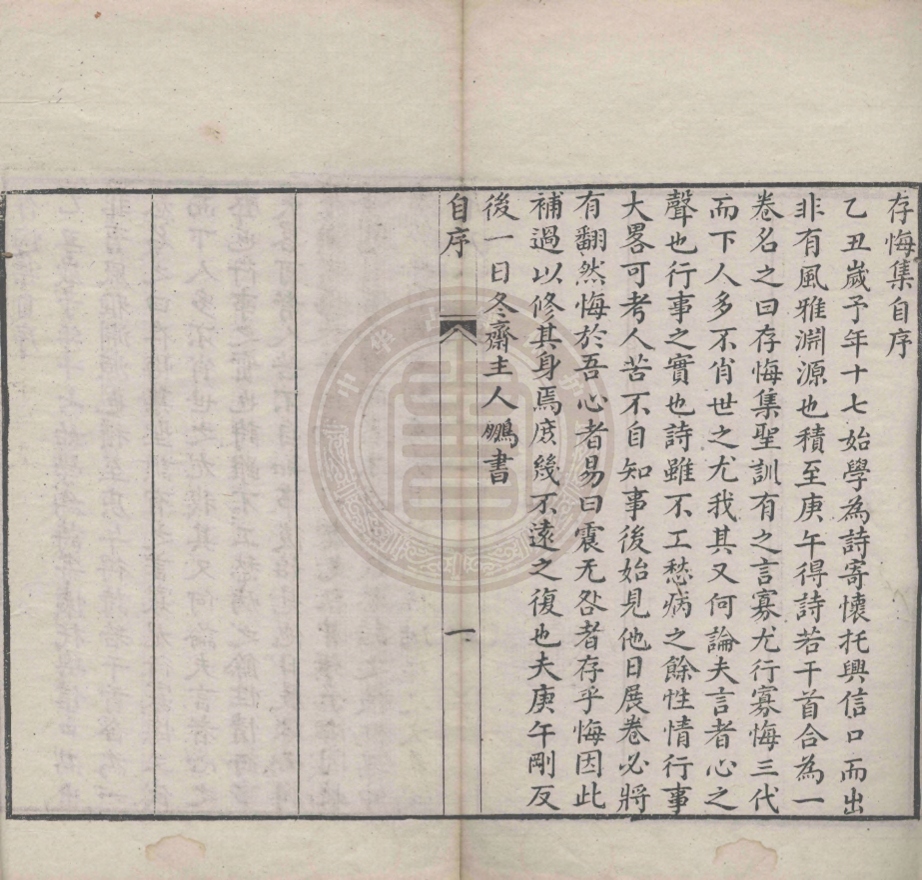 存悔集自序
乙丑歲予年十七始學為詩寄懷托興信口而出
非有風雅淵源也積至庚午得詩若干首合為一
卷名之曰存悔集聖訓有之言寡尤行寡悔三代
而下人多不肖世之尤我其又何論夫言者心之
聲也行事之實也詩雖不工愁病之餘性情行事
大畧可考人苦不自知事後始見他日展卷必將
有翻然悔於吾心者易曰震无咎者存乎悔因此
補過以修其身焉庶幾不遠之復也夫庚午剛反
後一日冬齋主人鵬書
自序
一